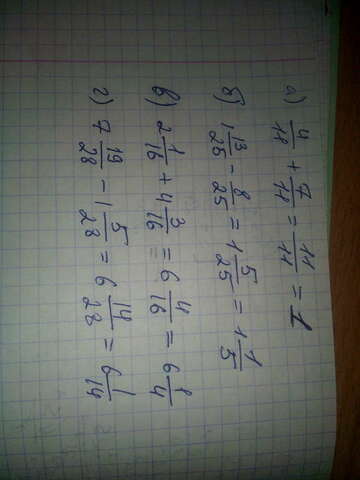 а) 4/11 + 7/11 = 11/11 = 1
б) 1 13/25 - 8/25 = 1 5/25 = 1 1/5
в) 2 1/16 + 4 3/16 = 6 4/16 = 6 1/4
г) 7 19/28 - 1 5/28 = 6 14/28 = 6 1/14